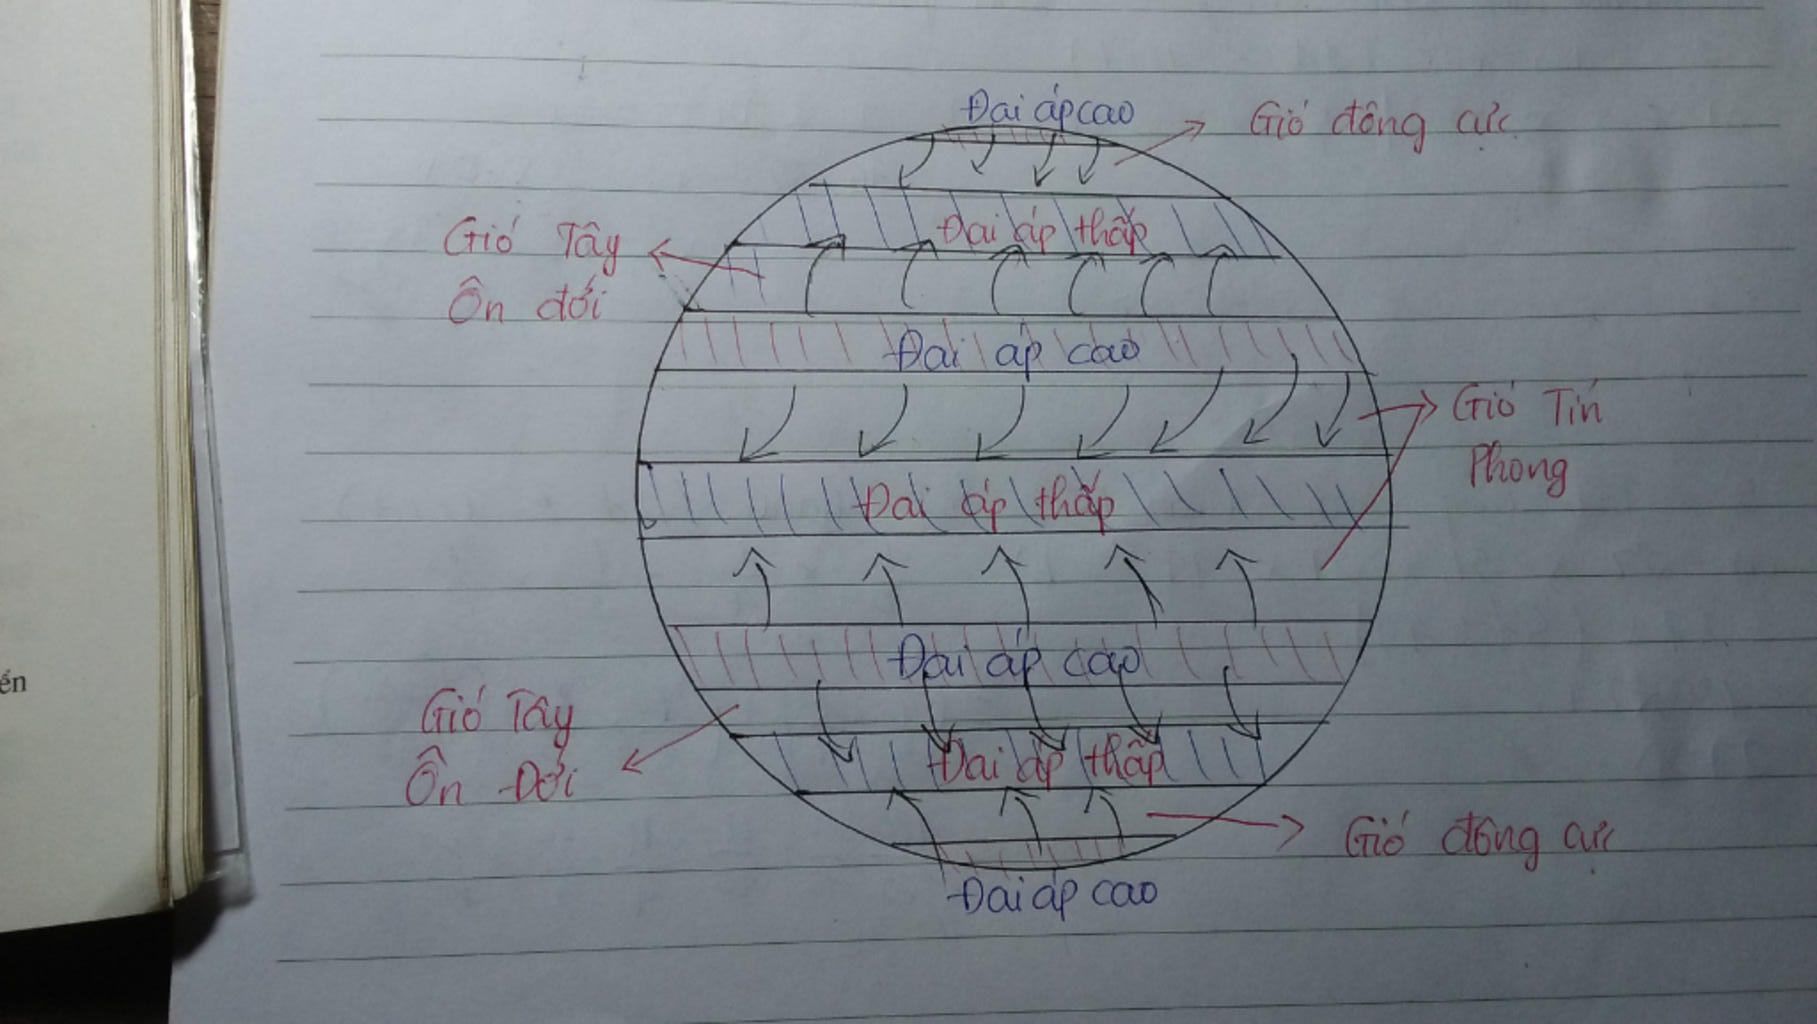 Đai áp cao
Gió đông cực
Đai áp thấp
Gió Tây
Ôn đới
Đai áp cao
Gió Tín
Phong
Đai áp thấp
Đai áp cao
Gió Tây
Ôn Đới
Đai áp thấp
Gió đông cực
Đai áp cao
ển